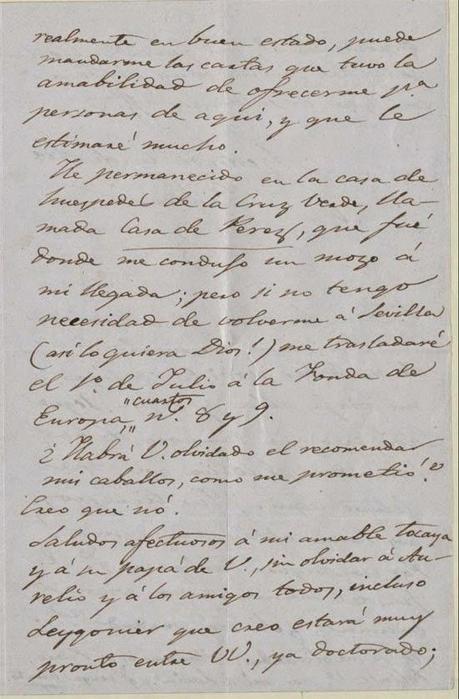 realmente en buen estado, puede
mandarme las cartas que tuvo la
amabilidad de ofrecerme pa
personas de aqui, y que le
estimaré mucho.
He permanecido en la casa de
huespedes de la Cruz Verde, lla-
mada Casa de Perez, que fué
donde me condujo un mozo á
mi llegada; pero si no tengo
necesidad de volverme á Sevilla
(así lo quiera Dios!) me trasladaré
el 1º de Julio á la Fonda de
Europa, "cuartos" n.º 8 y 9.
¿Habrá V. olvidado el recomendar
mis caballos, como me prometió?
Creo que nó.
Saludos afectuosos á mi amable tocaya
y á su papá de V., sin olvidar á Au-
relio y á los amigos todos, incluso
Leygonier que creo estará muy
pronto entre VV., ya doctorado;